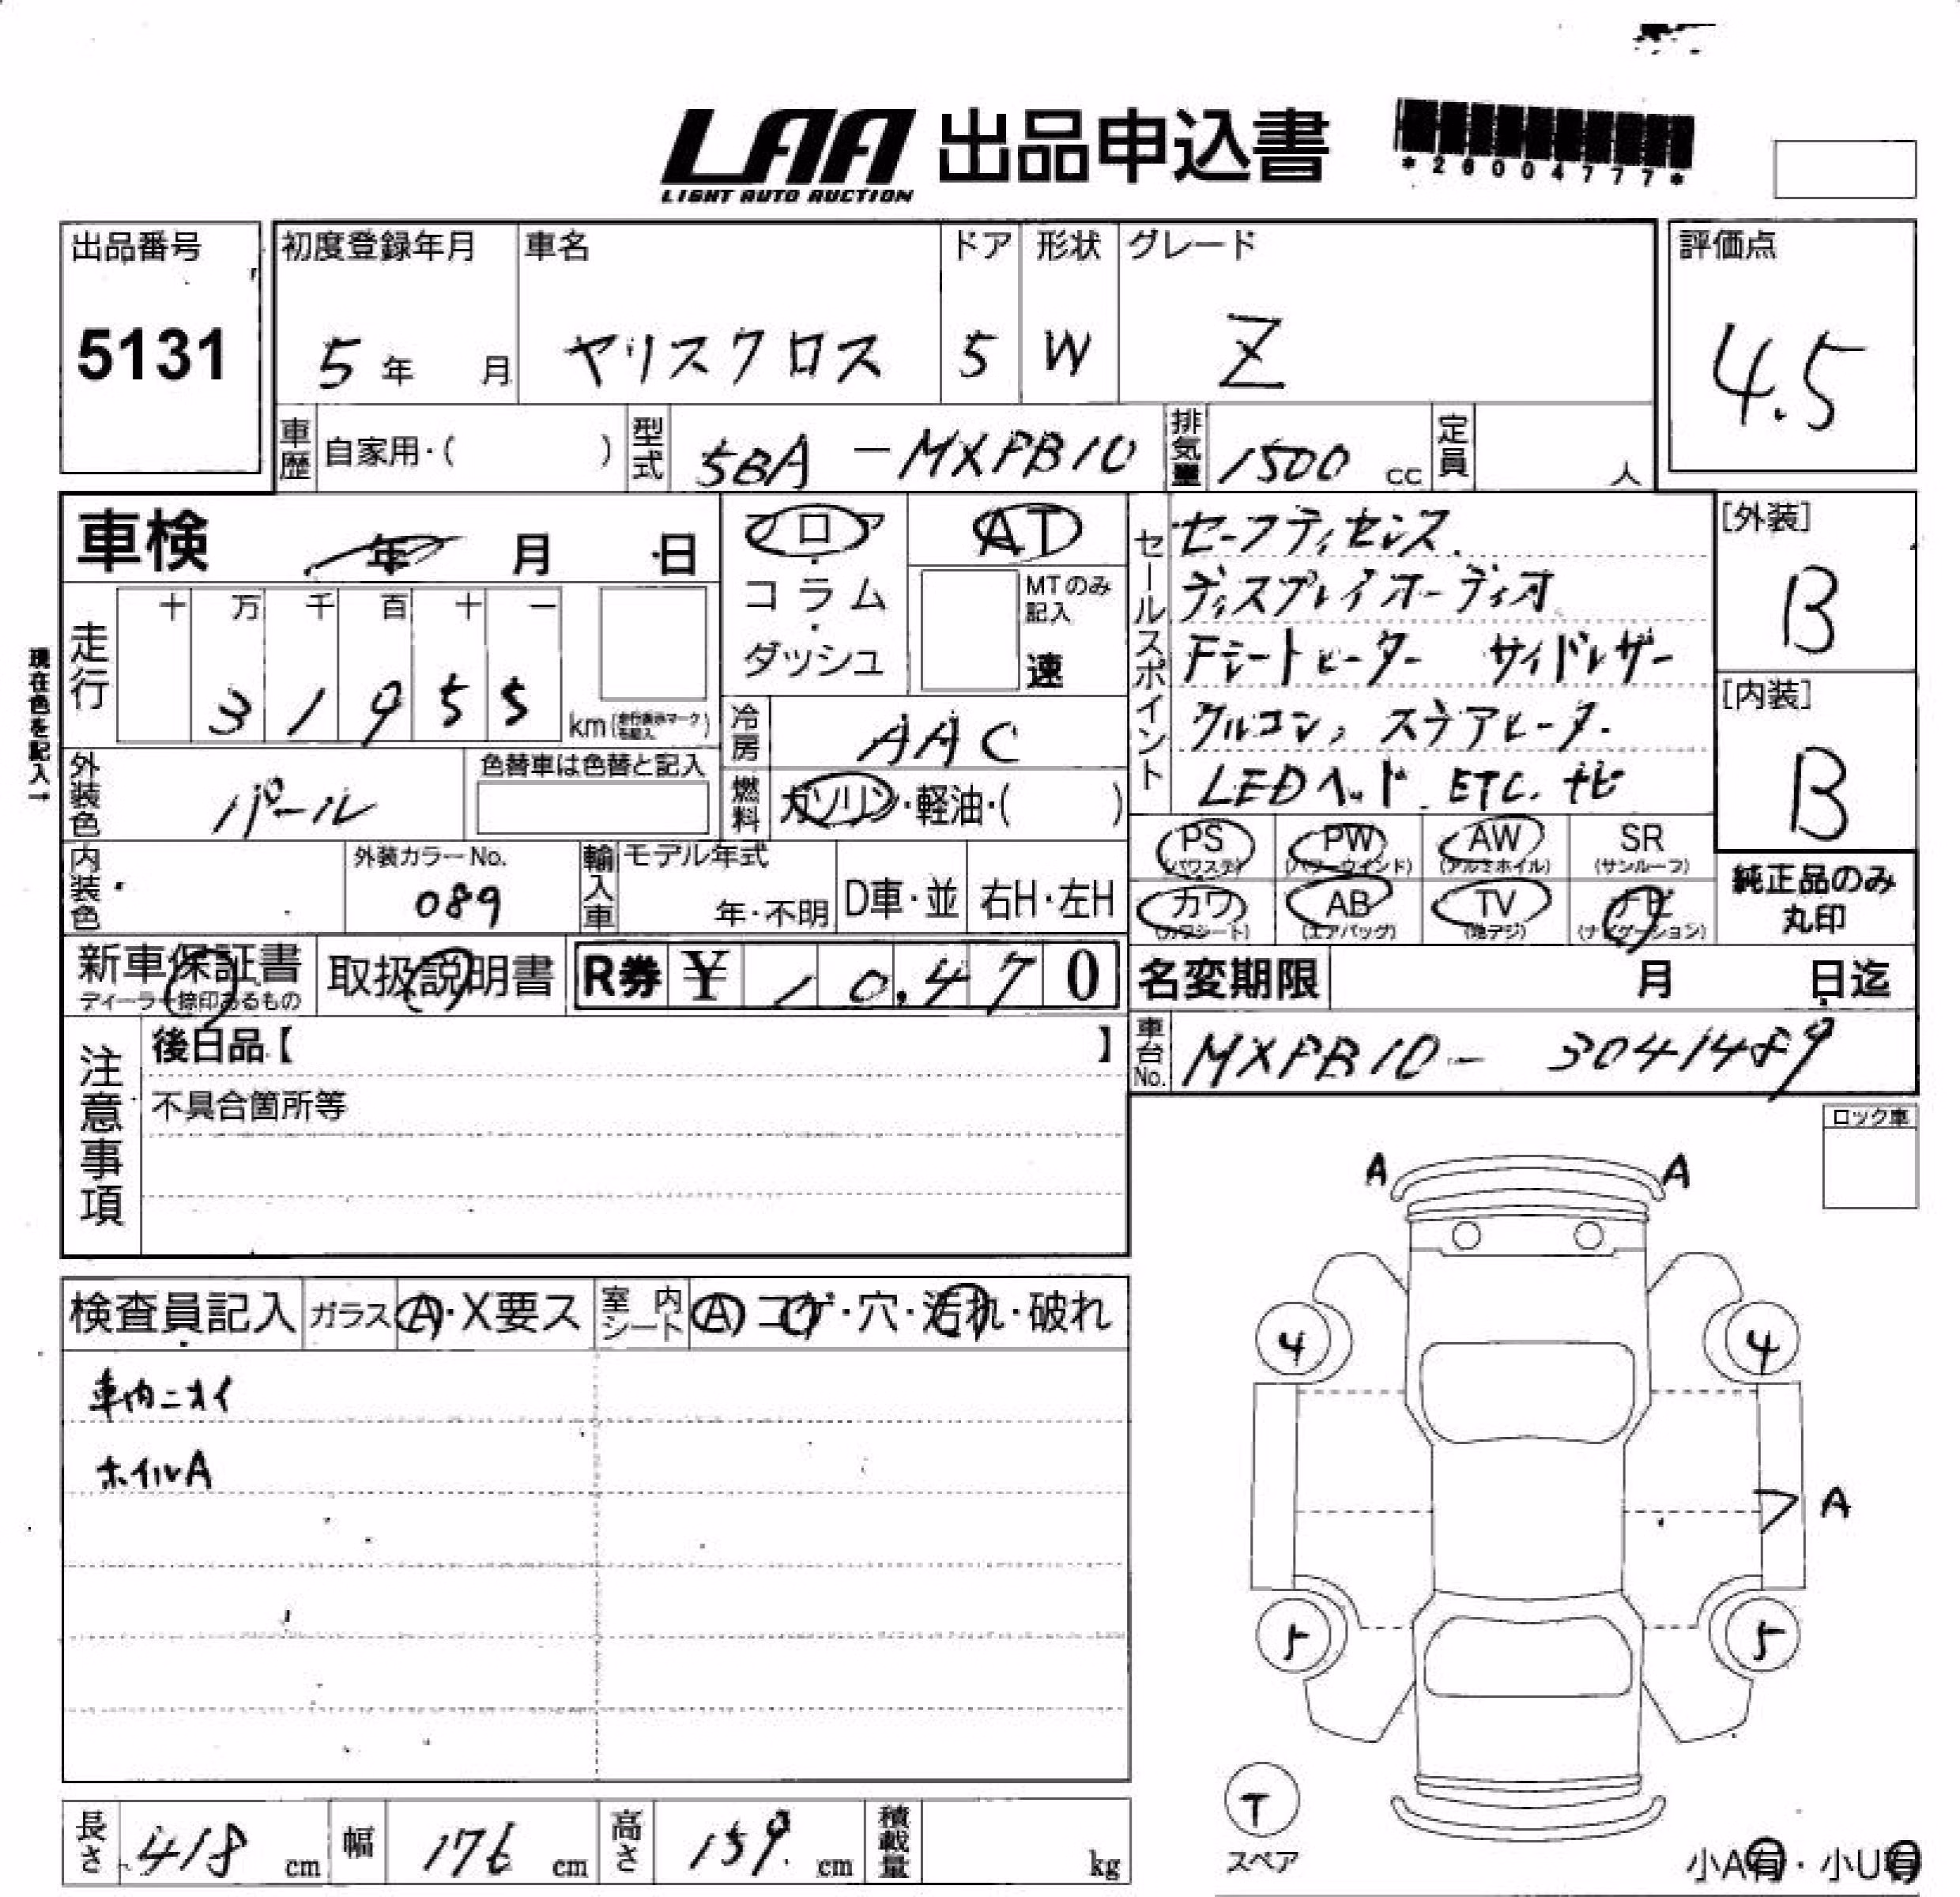 LAA 出品申込書
LIGHT AUTO AUCTION
*26004777*
出品番号 初度登録年月 車名 ドア 形状 グレード 評価点
5131 5年 月 ヤリスクロス 5 W Z 4.5
車歴 自家用・( ) 型式 5BA-MXPB10 排気量 1500 cc 定員 人
車検 年 月 日
フロア
コラム
ダッシュ
AT
MTのみ記入
速
現在色を記入→
走行 十 万 千 百 十 一
31955 km
冷房 AAC
外装色 パール
色替車は色替と記入
燃料 ガソリン・軽油・( )
内装色
外装カラーNo.
089
輸入車 モデル年式
年・不明 D車・並 右H・左H
セールスポイント
セーフティセンス.
ディスプレイオーディオ
Fシートヒーター サイドレザー
クルコン, ステアヒーター.
LEDヘッド. ETC. ナビ
[外装]
B
[内装]
B
PS (パワステ) PW (パワーウインド) AW (アルミホイル) SR (サンルーフ)
カワ (カワシート) AB (エアバッグ) TV (地デジ) ナビ (ナビゲーション)
純正品のみ
丸印
新車保証書 取扱説明書 R券 ¥ 10,470
ディーラー捺印あるもの
名変期限 月 日迄
車台No. MXPB10-3041489
注意事項
後日品【 】
不具合箇所等
ロック車
A A
検査員記入 ガラス A・X要ス 室内シート A コゲ・穴・汚れ・破れ
車内ニオイ
ホイルA
4 4
A
5 5
T
スペア
小A有・小U有
長さ 418 cm 幅 176 cm 高さ 159. cm 積載量 kg